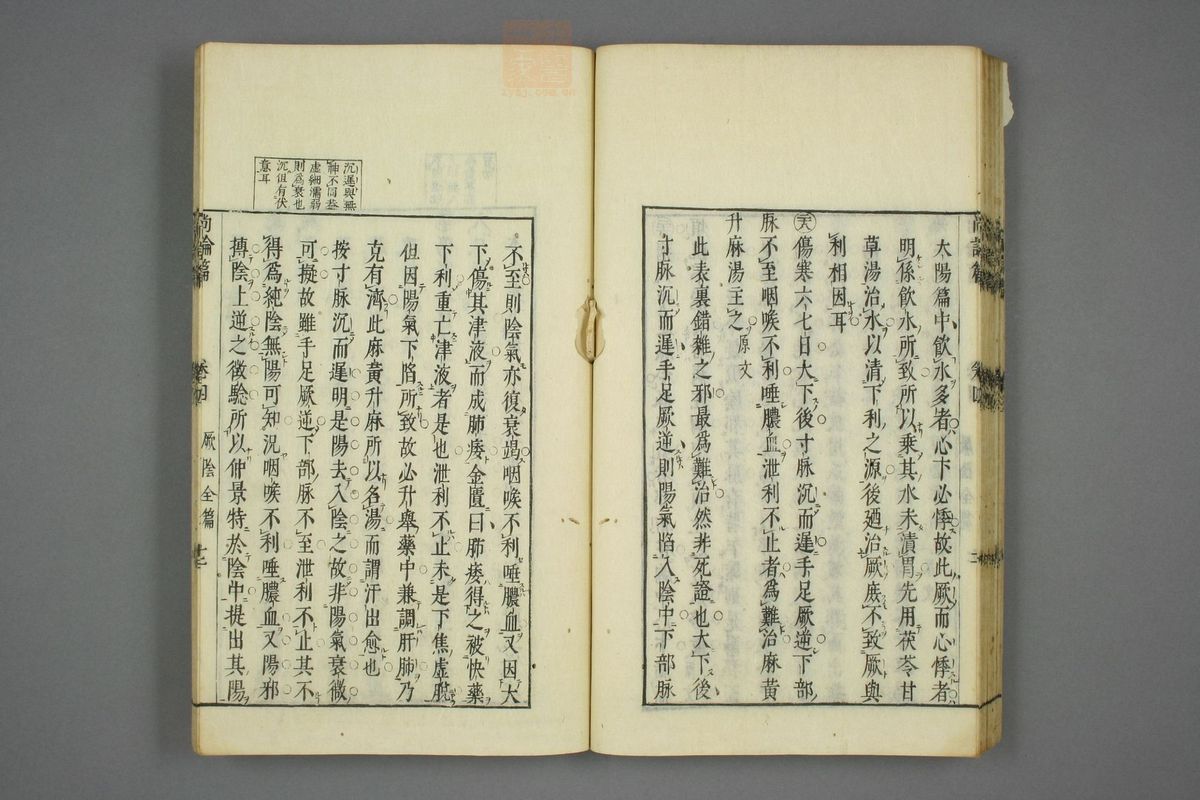 太陽篇中飲水多者心下必悸故此厥而心悸者
明係飲水所致所以乘其水未漬胃先用茯苓甘
草湯治水以清下利之源後廼治厥庶不致厥與
利相因耳
天傷寒六七日大下後寸脉沉而遲手足厥逆下部
脉不至咽喉不利唾膿血泄利不止者爲難治麻黄
升麻湯主之原文
此表裏錯雜之邪最爲難治然非死證也大下後
寸脉沉而遲手足厥逆則陽氣陷入陰中下部脉
沉遲與無
神不同
虚細濡弱
則爲衰也
沉但有伏
意耳
不至則陰氣亦復衰竭咽喉不利唾膿血又因大
下傷其津液而成肺痿金匱曰肺痿得之被快藥
下利重亡津液者是也泄利不止未是下焦虚脱
但因陽氣下陷所致故必升舉藥中兼調肝肺乃
克有濟此麻黄升麻所以名湯而謂汗出愈也
按寸脉沉而遲明是陽去入陰之故非陽氣衰微
可擬故雖手足厥逆下部脉不至泄利不止其不
得爲純陰無陽可知況咽喉不利唾膿血又陽邪
摶陰上逆之徵驗所以仲景特於陰中提出其陽
尚論篇 卷四 厥陰全篇 十二
zysj.com.cn